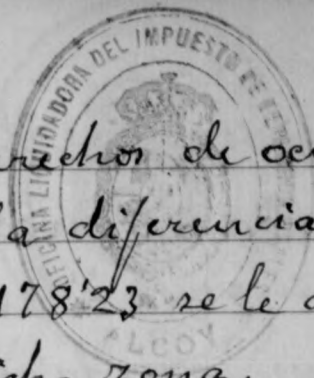 OFICINA LIQUIDADORA DEL IMPUESTO DE
ALCOY
rechos de oc
la diferencia
178'23 se le a
icha zona.